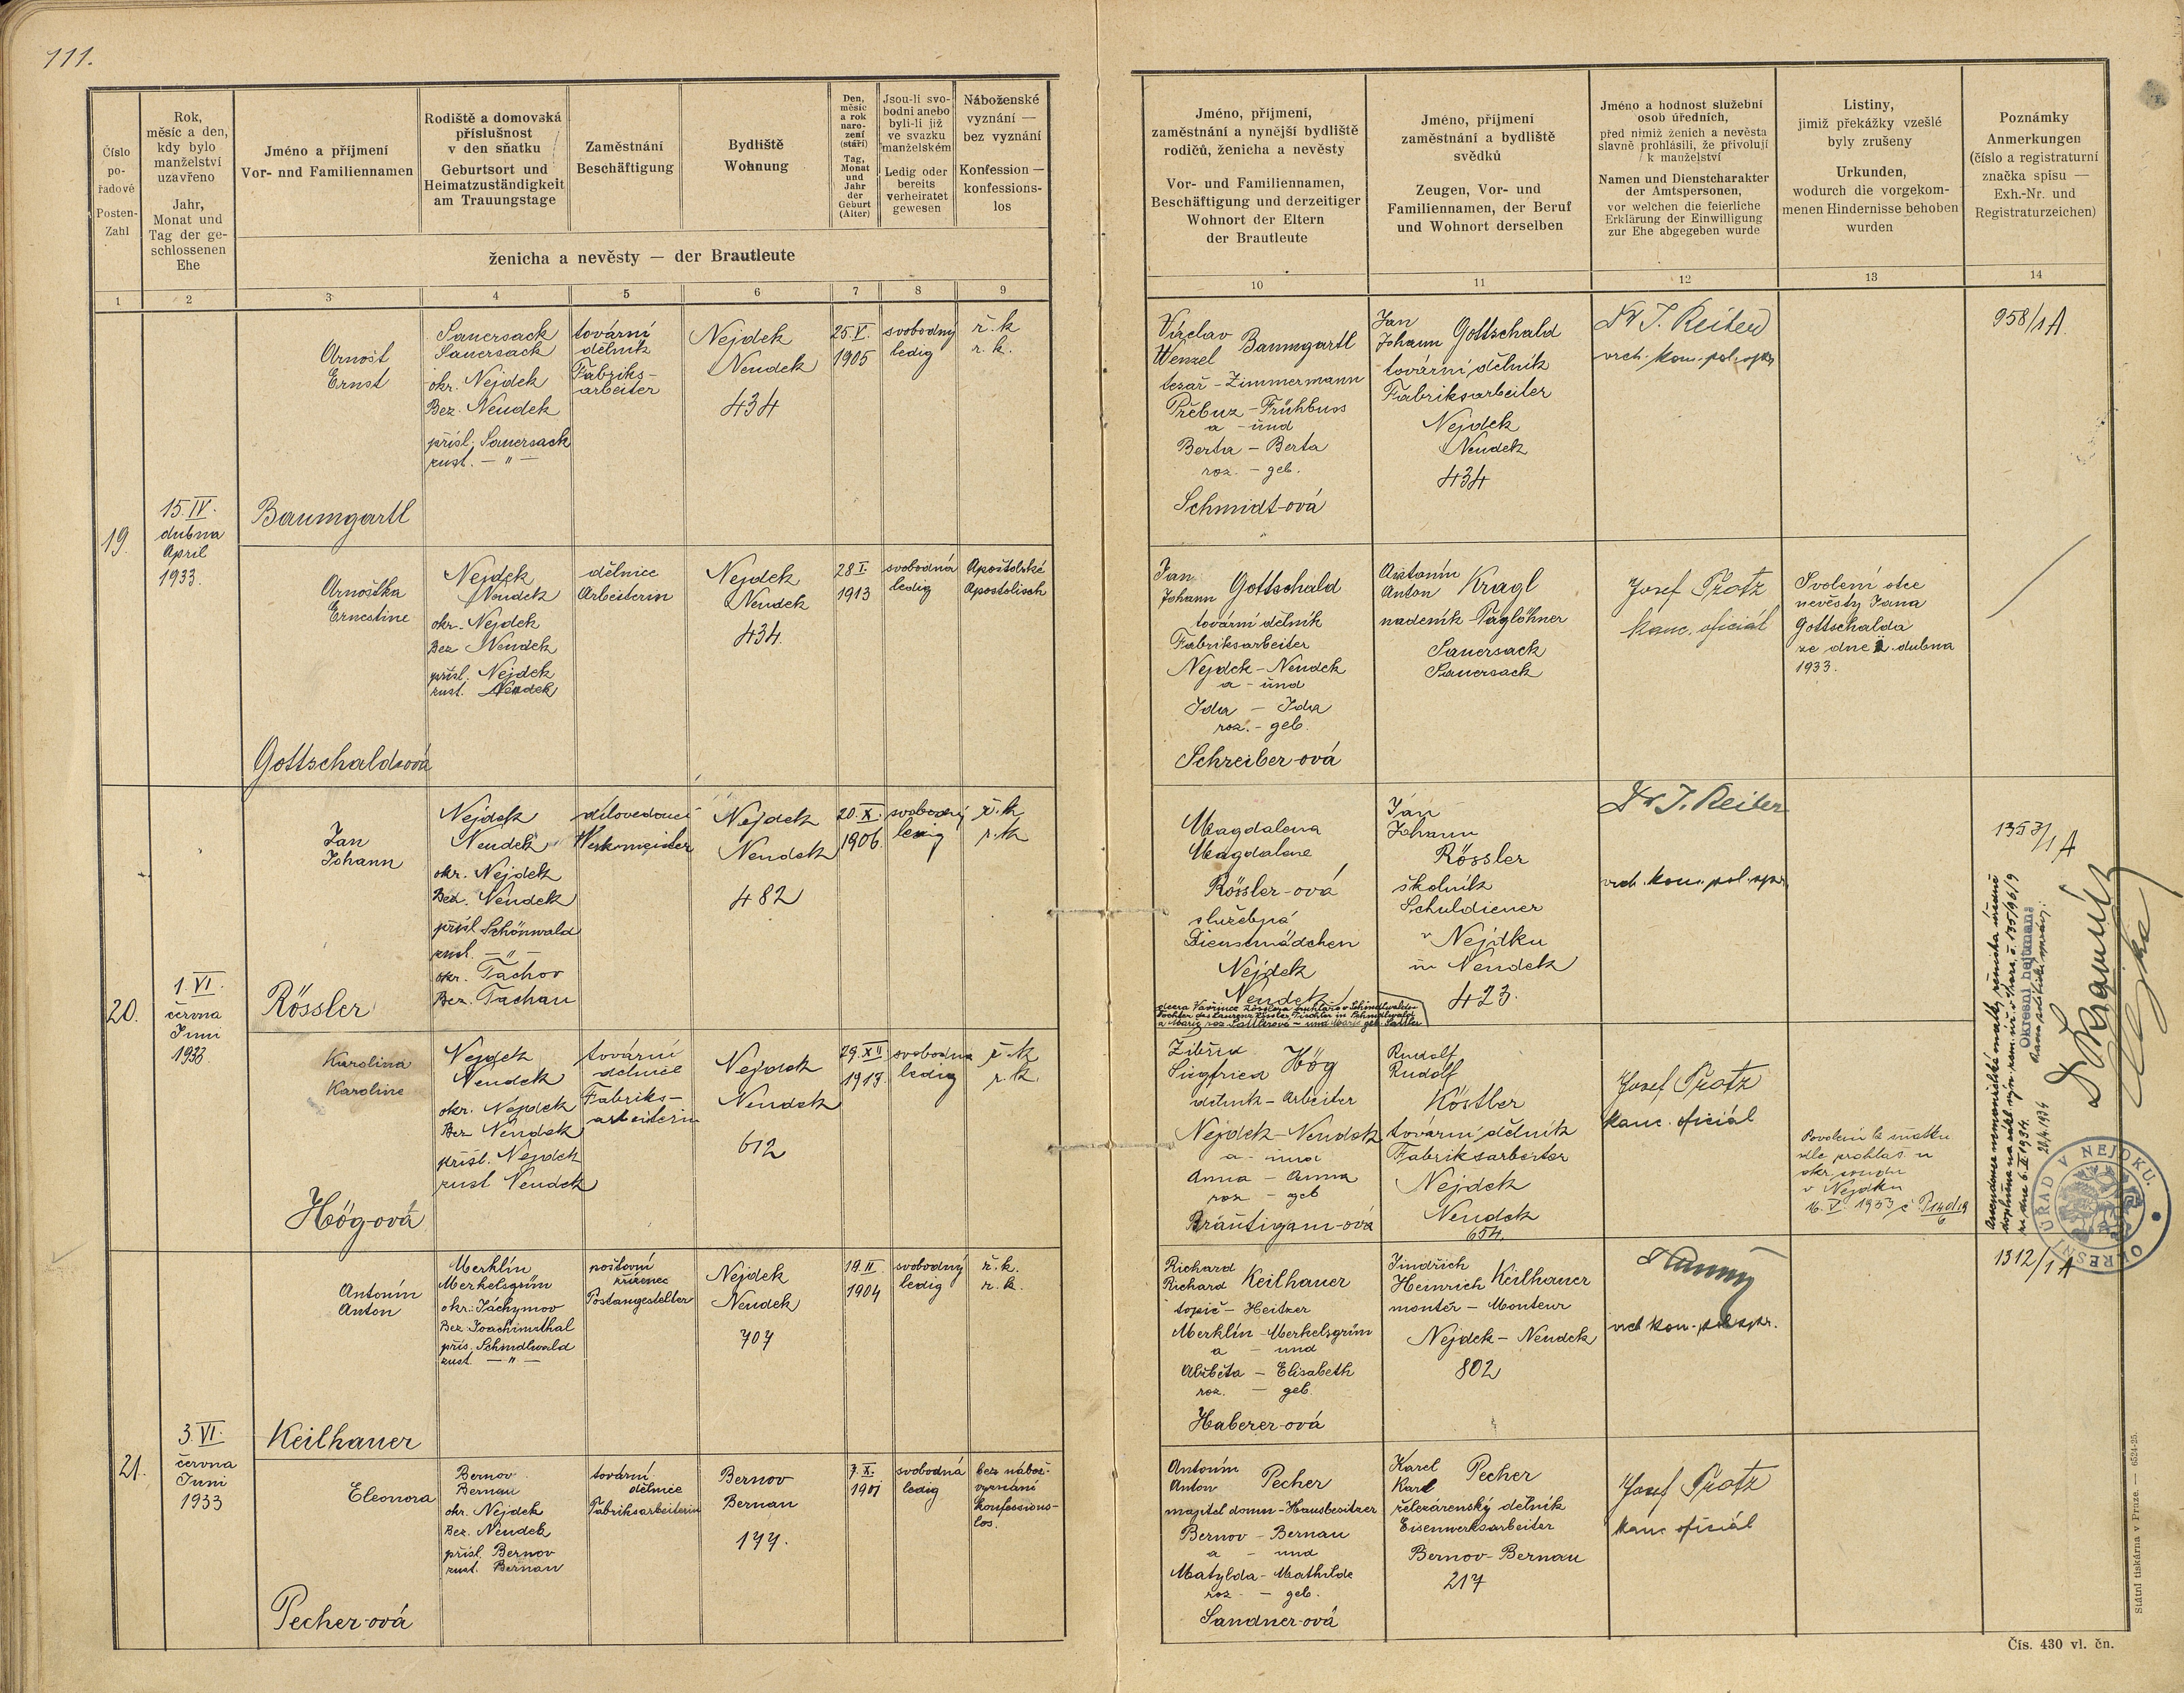 111.
Číslo
po-
řadové
Posten-
Zahl
Rok,
měsíc a den,
kdy bylo
manželství
uzavřeno
Jahr,
Monat und
Tag der ge-
schlossenen
Ehe
Jméno a příjmení
Vor- nnd Familiennamen
Rodiště a domovská
příslušnost
v den sňatku
Geburtsort und
Heimatzuständigkeit
am Trauungstage
Zaměstnání
Beschäftigung
Bydliště
Wohnung
Den,
měsíc
a rok
naro-
zení
(stáří)
Tag,
Monat
und
Jahr
der
Geburt
(Alter)
Jsou-li svo-
bodni anebo
byli-li již
ve svazku
manželském
Ledig oder
bereits
verheiratet
gewesen
Náboženské
vyznání —
bez vyznání
Konfession —
konfessions-
los
ženicha a nevěsty — der Brautleute
Jméno, příjmení,
zaměstnání a nynější bydliště
rodičů, ženicha a nevěsty
Vor- und Familiennamen,
Beschäftigung und derzeitiger
Wohnort der Eltern
der Brautleute
Jméno, příjmení
zaměstnání a bydliště
svědků
Zeugen, Vor- und
Familiennamen, der Beruf
und Wohnort derselben
Jméno a hodnost služební
osob úředních,
před nimiž ženich a nevěsta
slavně prohlásili, že přivolují
k manželství
Namen und Dienstcharakter
der Amtspersonen,
vor welchen die feierliche
Erklärung der Einwilligung
zur Ehe abgegeben wurde
Listiny,
jimiž překážky vzešlé
byly zrušeny
Urkunden,
wodurch die vorgekom-
menen Hindernisse behoben
wurden
Poznámky
Anmerkungen
(číslo a registraturní
značka spisu —
Exh.-Nr. und
Registraturzeichen)
1 2 3 4 5 6 7 8 9 10 11 12 13 14
19.
15. IV.
dubna
April
1933.
Arnošt
Ernst
Baumgartl
Sauersack
Sauersack
okr. Nejdek
Bez. Neudek
přísl. Sauersack
zust. — " —
tovární
dělník
Fabriks-
arbeiter
Nejdek
Neudek
434
25. V.
1905
svobodný
ledig
ř. k
r. k.
Václav
Wenzel Baumgartl
tesař - Zimmermann
Přebuz - Frühbuss
a - und
Berta - Berta
roz. - geb.
Schmidt-ová
Jan
Johann Gottschald
tovární dělník
Fabriksarbeiter
Nejdek
Neudek
434
Dr J. Reiter
vrch. kom. pol. spr.
958/1 A.
Arnoštka
Ernestine
Gottschald-ová
Nejdek
Neudek
okr. Nejdek
Bez Neudek
přísl. Nejdek
zust. Neudek
dělnice
Arbeiterin
Nejdek
Neudek
434.
28 I.
1913
svobodná
ledig
Apoštolské
Apostolisch
Jan
Johann Gottschald
tovární dělník
Fabriksarbeiter
Nejdek - Neudek
a - und
Ida - Ida
roz. - geb.
Schreiber-ová
Antonín
Anton Kragl
nadeník - Taglöhner
Sauersack
Sauersack
Josef Protz
kanc. oficiál
Svolení otce
nevěsty Jana
Gottschalda
ze dne dubna
1933.
20.
1. VI.
června
Juni
1933.
Jan
Johann
Rössler
Nejdek
Neudek
okr. Nejdek
Bez. Neudek
přísl Schönwald
zust. — " —
okr. Tachov
Bez. Tachau
dílovedoucí
Werkmeister
Nejdek
Neudek
482
20. X.
1906.
svobodný
ledig
ř. k
r. k
Magdalena
Magdalene
Rössler-ová
služebná
Dienstmädchen
Nejdek
Neudek
Jan
Johann
Rössler
školník
Schuldiener
v Nejdku
in Neudek
423.
Dr J. Reiter
vrch. kom. pol. spr.
1353/1 A
Okresní hejtman:
Karolina
Karoline
Högová
Nejdek
Neudek
okr. Nejdek
Bez Neudek
přísl. Nejdek
zust. Neudek
tovární
dělnice
Fabriks-
arbeiterin
Nejdek
Neudek
612
29. XII
svobodná
ledig
ř. k
r. k.
Zibřid
Siegfried Hög
dělník - Arbeiter
Nejdek - Neudek
a - und
Anna - Anna
roz - geb
Bräutigam-ová
Rudolf
Rudolf
Köstler
tovární dělník
Fabriksarbeiter
Nejdek
Neudek
654.
Josef Protz
kanc. oficiál
Povolení k sňatku
dle prohlas. u
okr. soudu
v Nejdku
16. V. 1933
OKRESNÍ ÚŘAD V NEJDKU.
21.
3. VI.
června
Juni
1933
Antonín
Anton
Keilhauer
Merklín
Merkelsgrün
okr. Jáchymov
Bez. Joachimsthal
přís. Schmidlwald
zust. — " —
poštovní
zřízenec
Postangestellter
Nejdek
Neudek
707
19. II
1904
svobodný
ledig
ř. k.
r. k.
Richard
Richard Keilhauer
topič - Heitzer
Merklín - Merkelsgrün
a - und
Alžběta - Elisabeth
roz. - geb.
Haberer-ová
Jindřich
Heinrich Keilhauer
montér - Monteur
Nejdek - Neudek
802
vrch kom. pol. spr.
1312/1 A
Eleonora
Pecher-ová
Bernov
Bernau
okr. Nejdek
Bez. Neudek
přísl. Bernov
zust. Bernau
tovární
dělnice
Fabriksarbeiterin
Bernov
Bernau
177.
7. X.
1901
svobodná
ledig
bez nábož.
vyznání
konfessions-
los.
Antonín
Anton Pecher
majitel domu - Hausbesitzer
Bernov - Bernau
a - und
Matylda - Mathilde
roz. - geb.
Sandner-ová
Karel
Karl Pecher
železárenský dělník
Eisenwerksarbeiter
Bernov - Bernau
217
Josef Protz
kanc. oficiál
Státní tiskárna v Praze. — 6524-25.
Čís. 430 vl. čn.